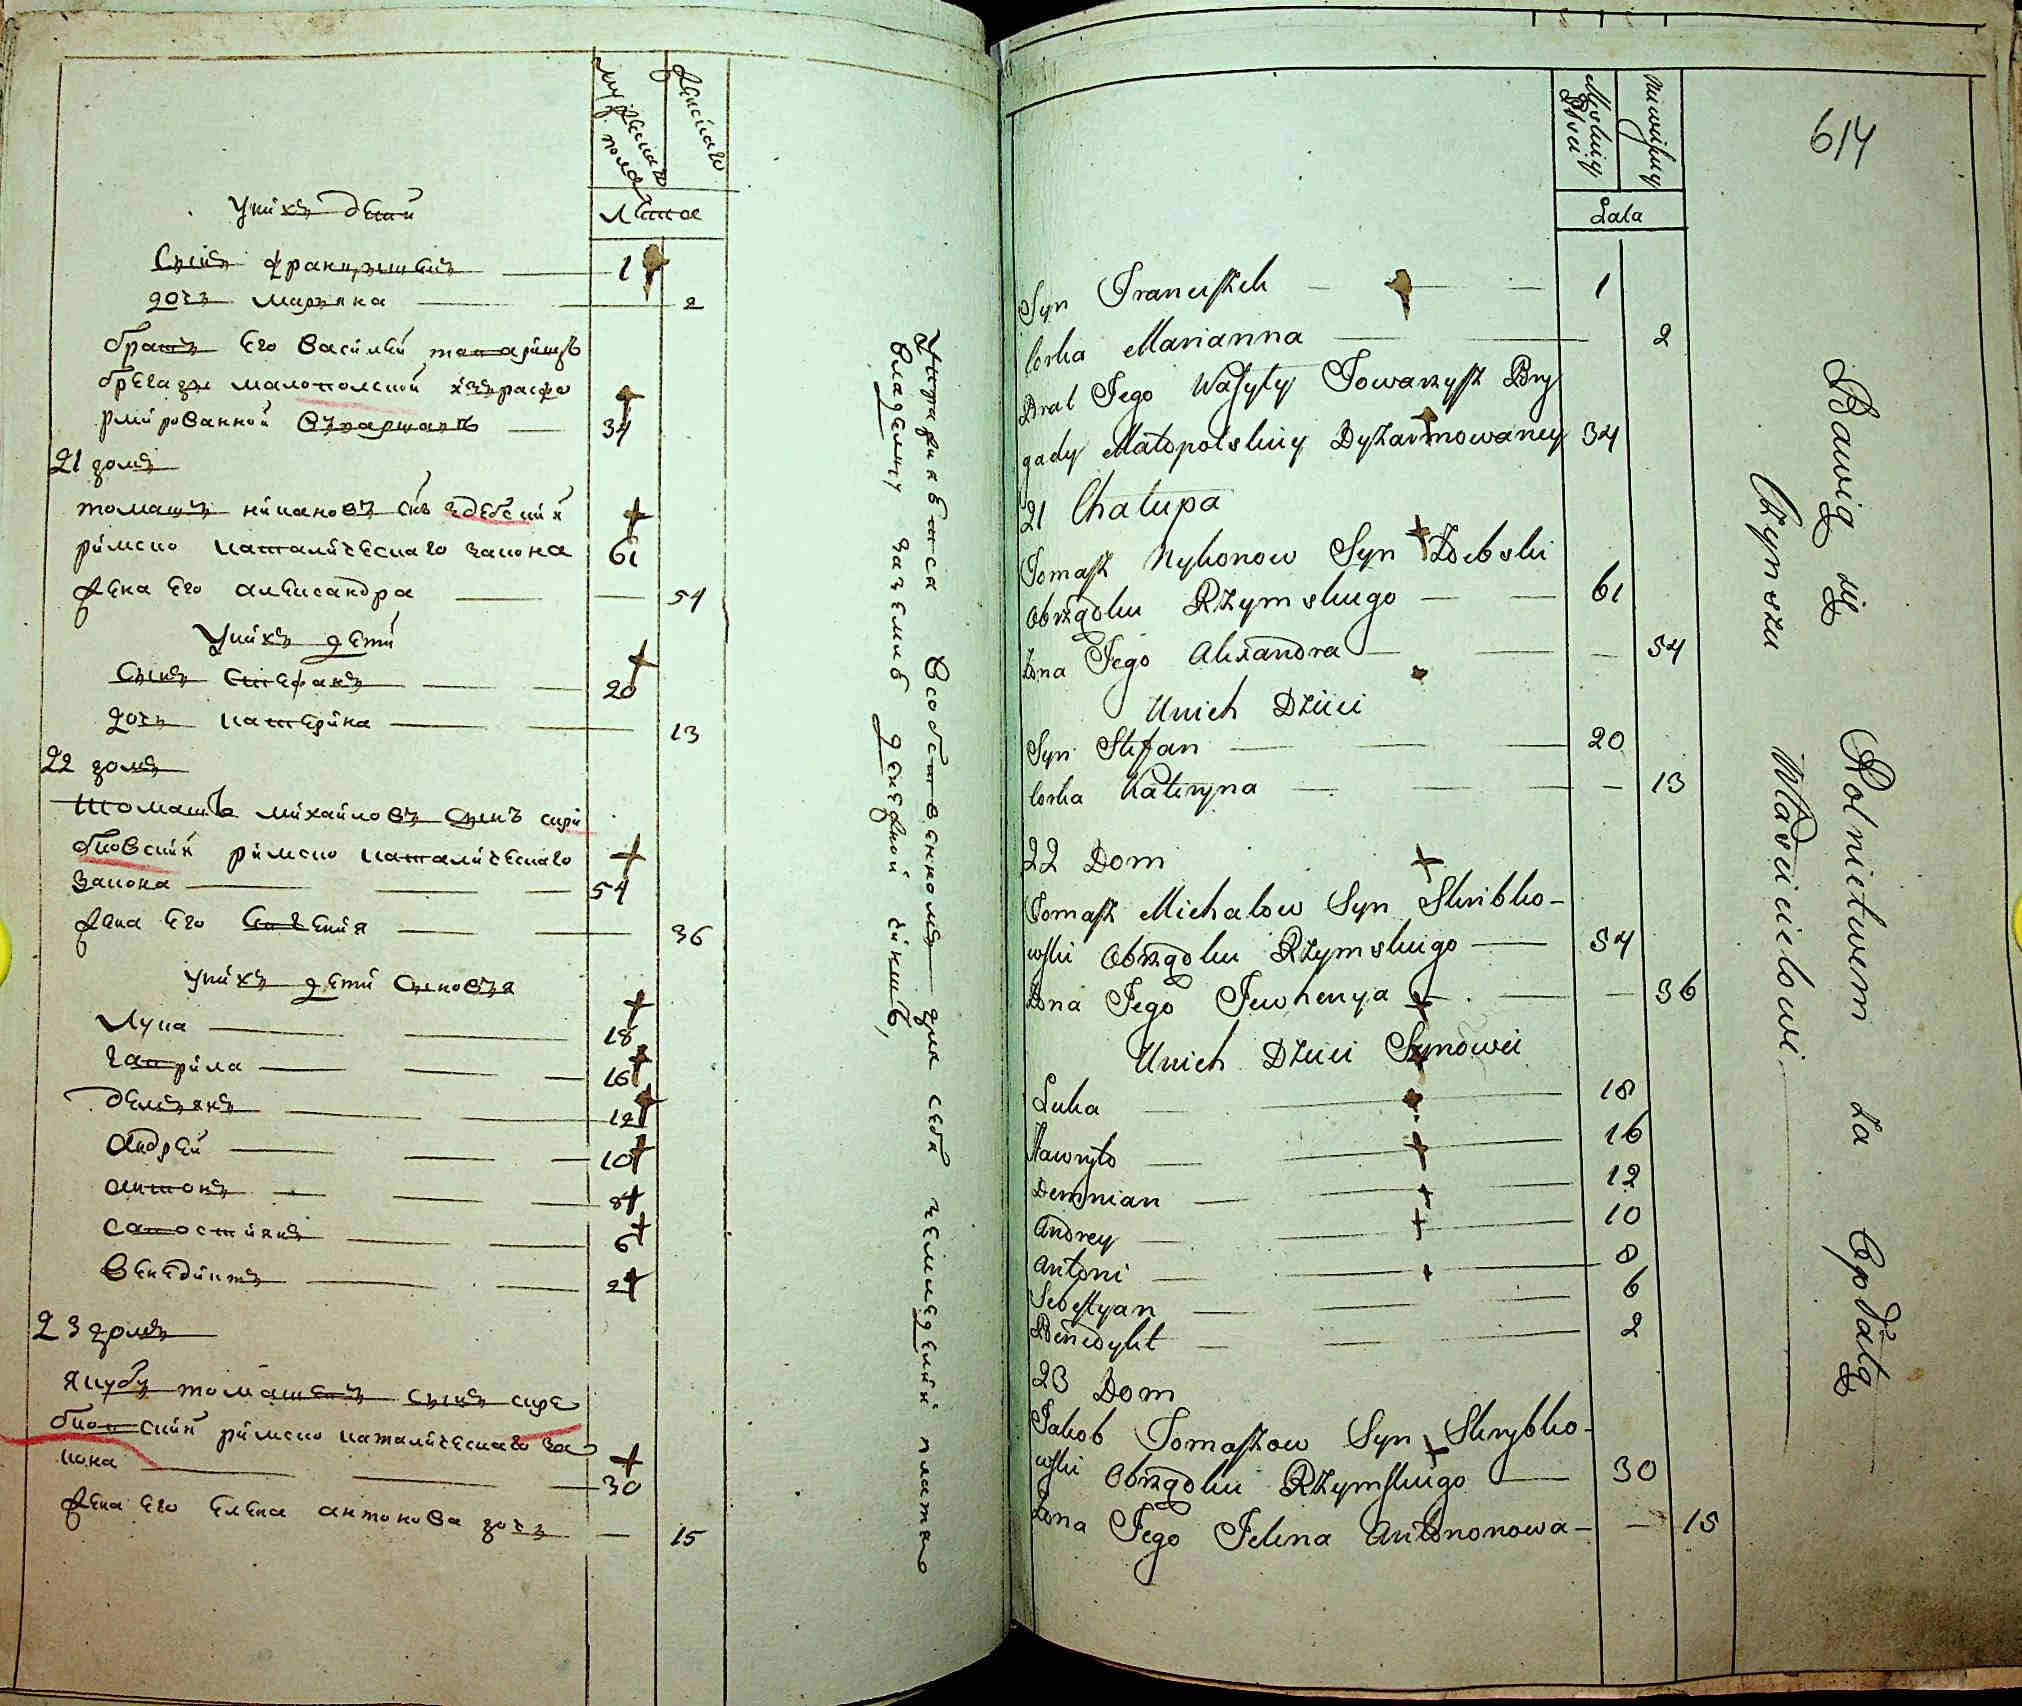 мужеска пола
женскаго
Лѣтое
у них дѣти
Сынъ францышекъ 1
дочь марьяна 2
братъ его василей товарищъ
брегады малополской
34
21 домъ
томашъ никановъ снъ здебский
римско католическаго закона 61
жена его александра 54
у них дети
сынъ стефанъ 20
дочь катерина 13
22 домъ
Томашъ михайловъ сынъ скри
бковский римско католическаго
закона 54
жена его 36
у них дети сыновья
Лука 18
гаврила 16
демянъ 12
андрей 10
антонъ 8
савостиянъ 6
венедиктъ 2
23 домъ
якубъ томашевъ сынъ скре
бковский римско католическаго за
кона 30
жена его елена антонова дочь 15
Упражняется в собственномъ для себя земледелии платою
владелцу за землю денежной чиншъ,
614
Męskiej Płci
Niewiesciej
Lata
Syn Franciszek 1
Corka Marianna 2
Brat Jego Wasyly Towarzysz Bry
gady Małopolskiej 34
21 Chałupa
Tomasz Nykonow Syn Zdebski
Obrządku Rzymskiego 61
Żona Jego Alixandra 54
U nich Dzieci
Syn Stefan 20
Corka Kateryna 13
22 Dom
Tomasz Michałow Syn Skribko-
wski Obrządku Rzymskiego 54
Żona Jego Jewhenya 36
U nich Dzieci Synowei
Łuka 18
Hawryło 16
Demnian 12
Andrey 10
Antoni 8
Sebestyan 6
Benedykt 2
23 Dom
Jakob Tomaszow Syn Skrybko-
wski Obrządku Rzymskiego 30
Żona Jego Jelena Antononowa- 15
Bawią się Rolnictwem za Opłatą
Czynszu Właścicielowi